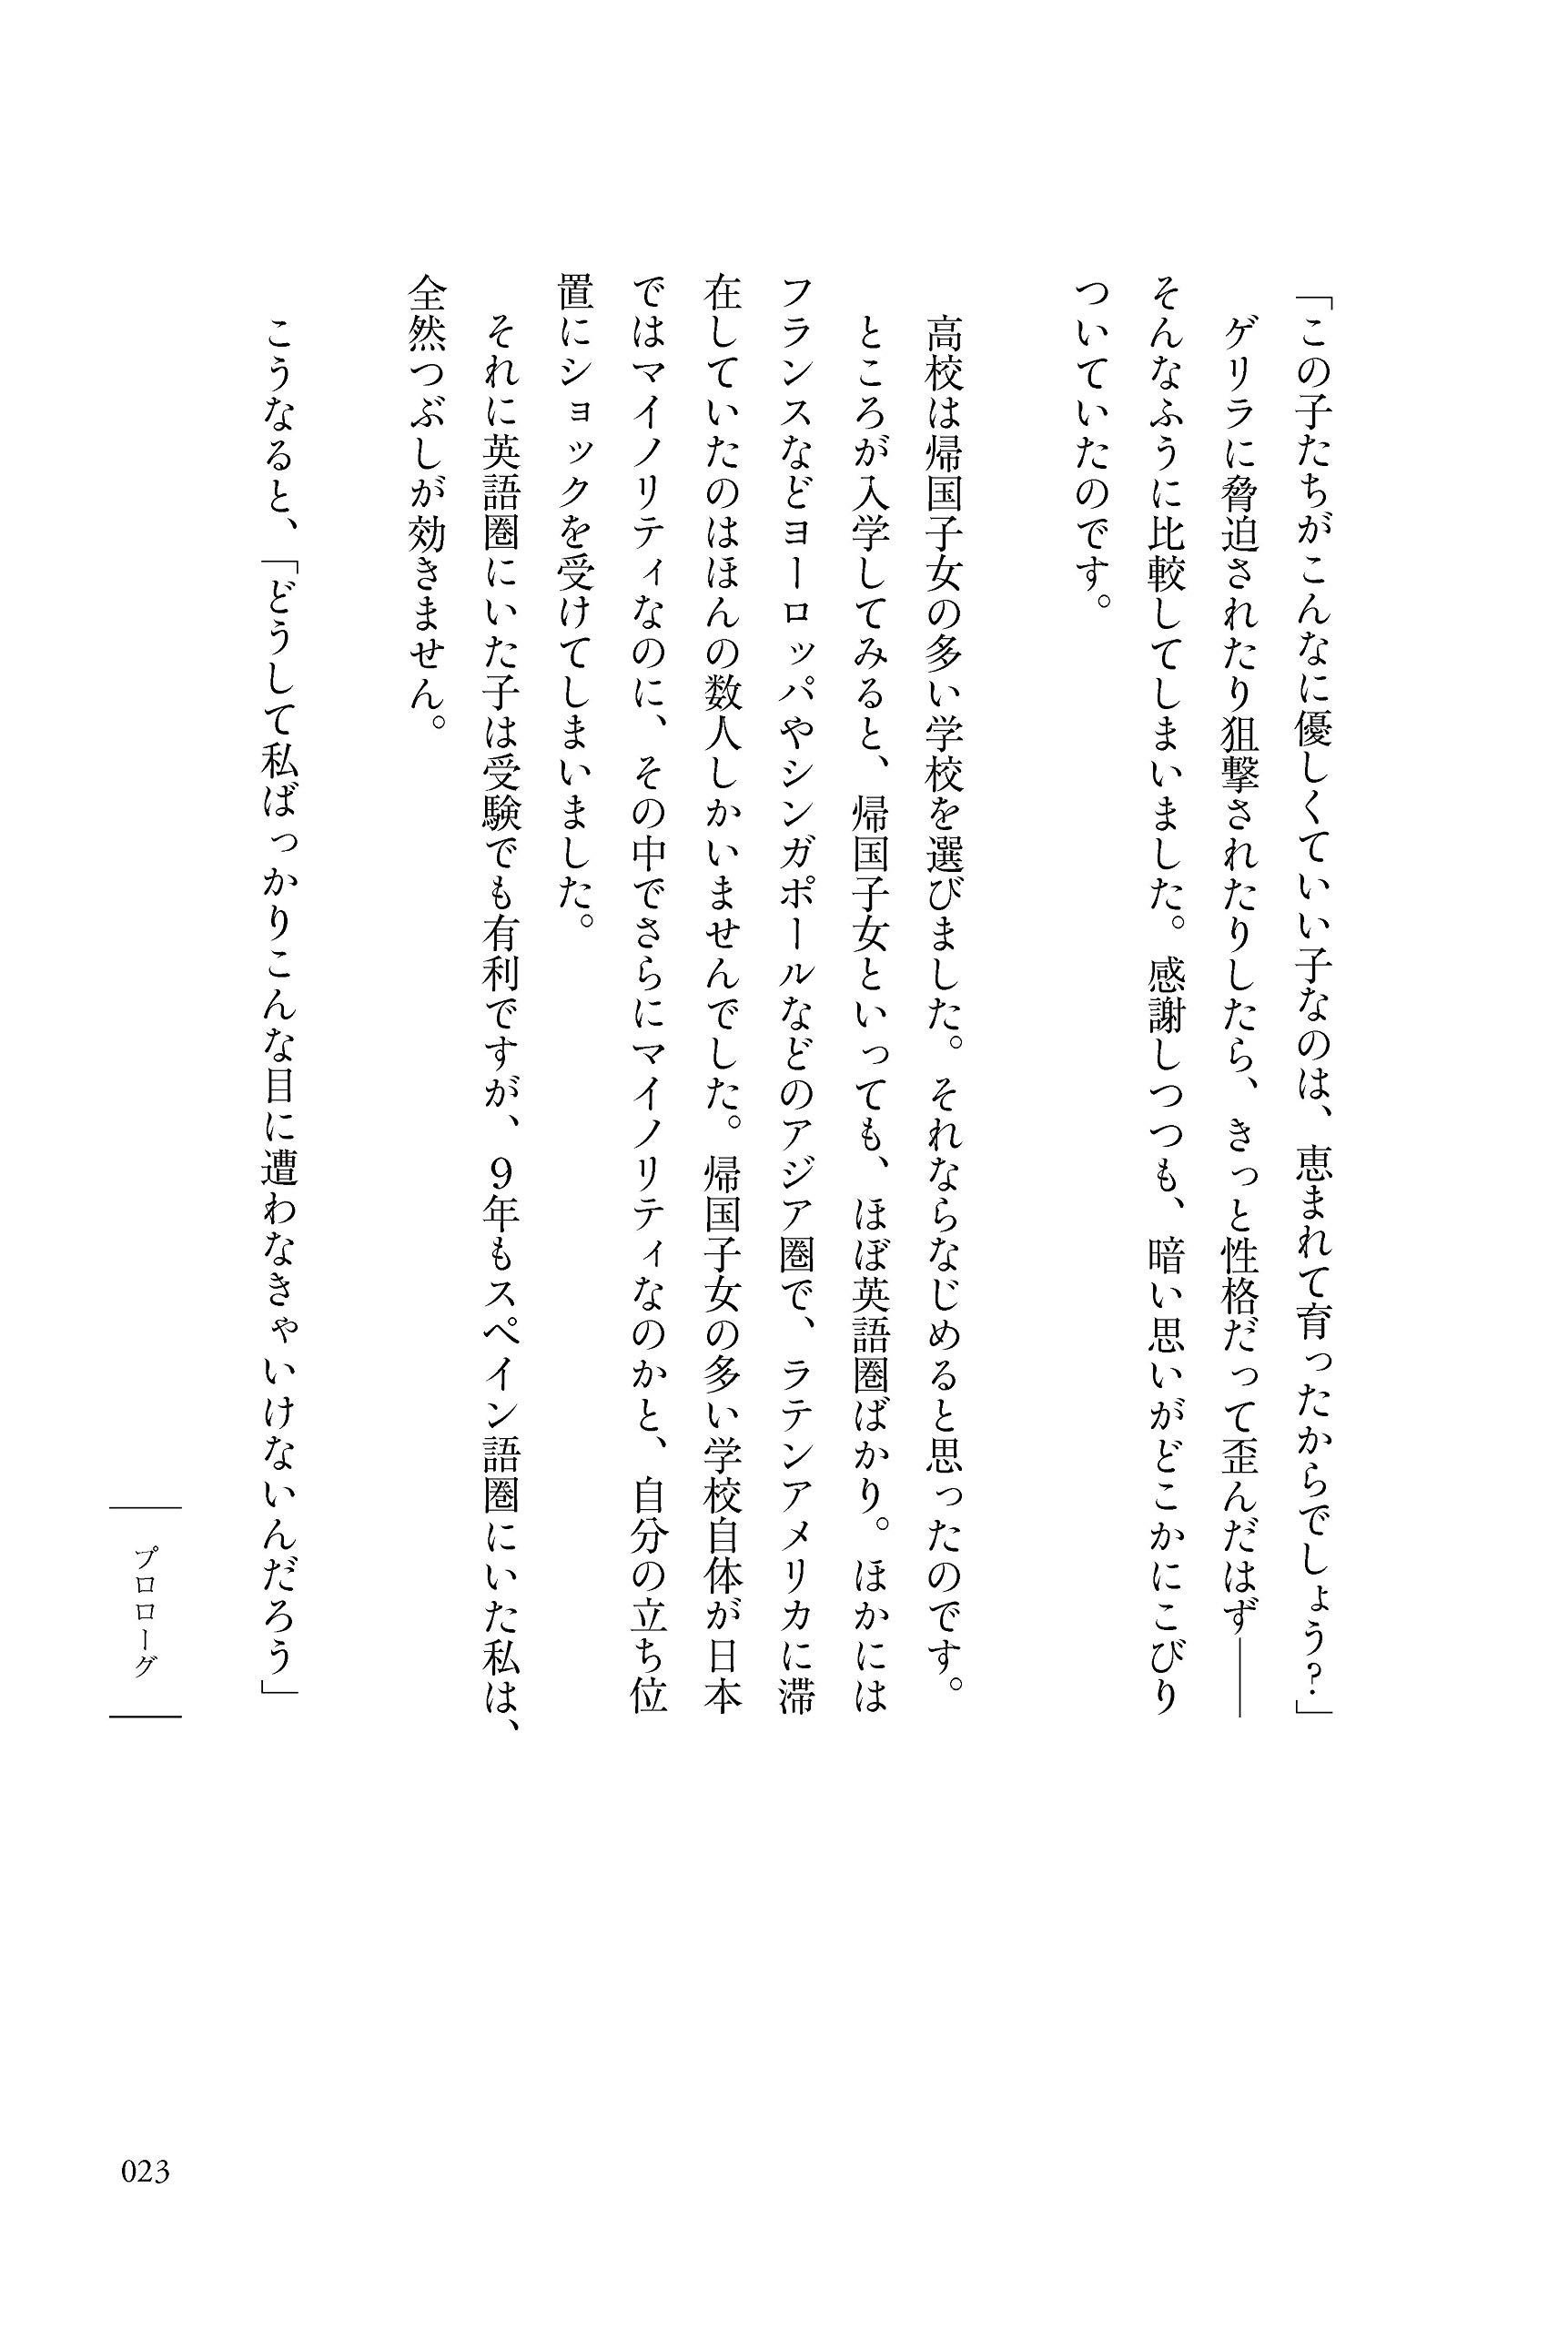 「この子たちがこんなに優しくていい子なのは、恵まれて育ったからでしょう?」
ゲリラに脅迫されたり狙撃されたりしたら、きっと性格だって歪んだはず――
そんなふうに比較してしまいました。感謝しつつも、暗い思いがどこかにこびり
ついていたのです。
高校は帰国子女の多い学校を選びました。それならなじめると思ったのです。
ところが入学してみると、帰国子女といっても、ほぼ英語圏ばかり。ほかには
フランスなどヨーロッパやシンガポールなどのアジア圏で、ラテンアメリカに滞
在していたのはほんの数人しかいませんでした。帰国子女の多い学校自体が日本
ではマイノリティなのに、その中でさらにマイノリティなのかと、自分の立ち位
置にショックを受けてしまいました。
それに英語圏にいた子は受験でも有利ですが、9年もスペイン語圏にいた私は、
全然つぶしが効きません。
こうなると、「どうして私ばっかりこんな目に遭わなきゃいけないんだろう」
プロローグ
023